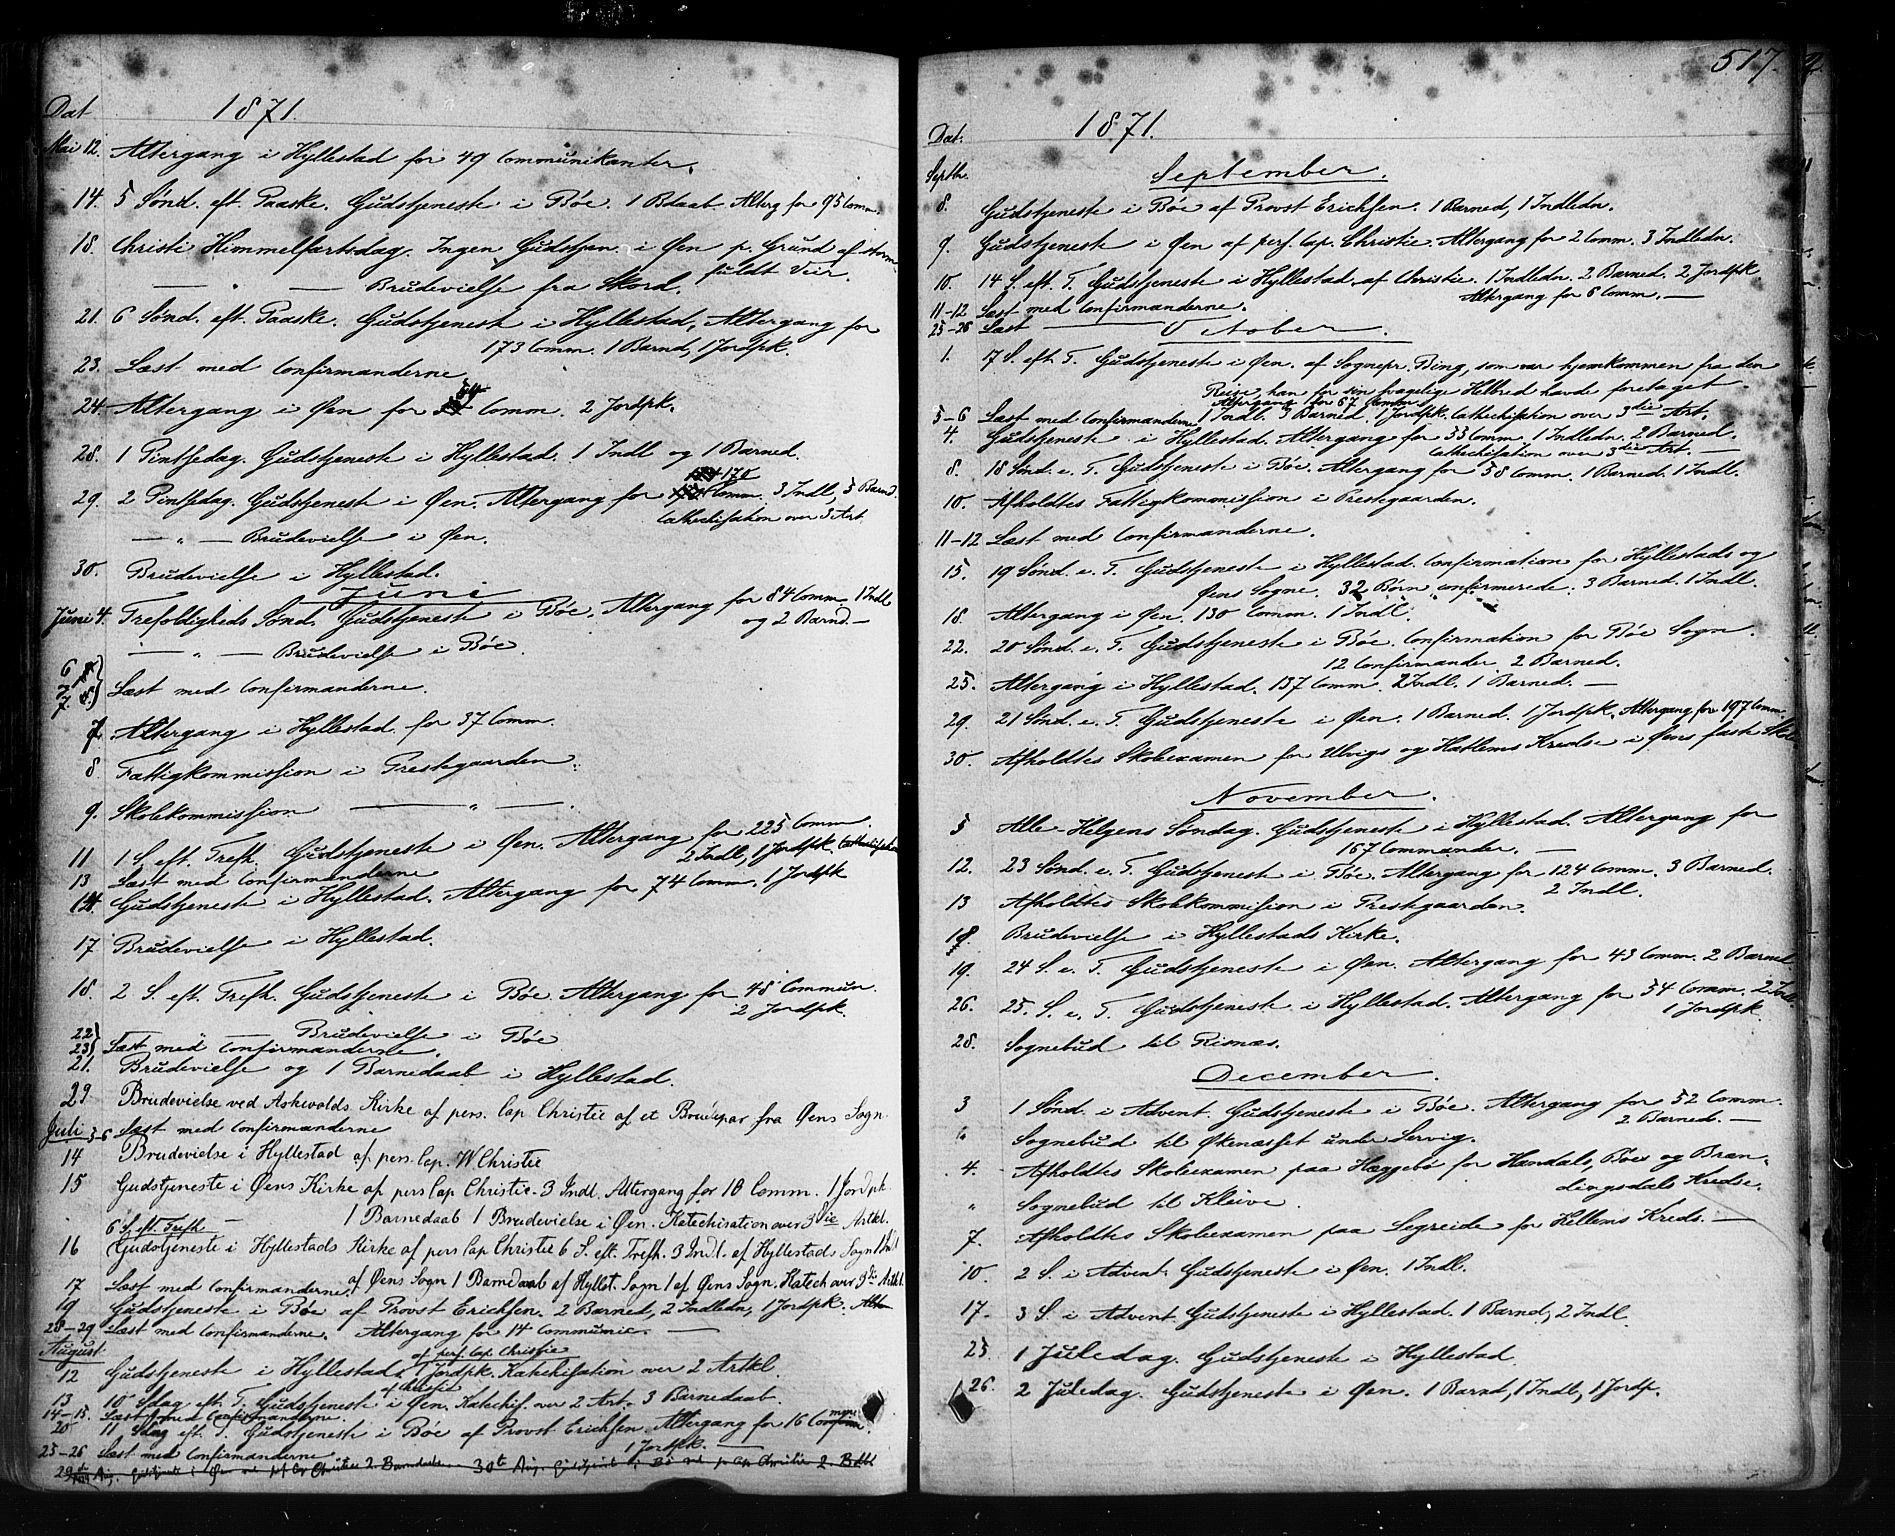 Dat 1871.
Mai 12. Altergang i Hyllestad for 49 Communikanter.
14. 5 Sønd. eft. Paaske. Gudstjeneste i Bøe. 1 Bdaab. Alterg for 95 Comm.
18. Christi Himmelfartsdag. Ingen Gudstjen. i Øen p. Grund af storm-
fuldt Veir.
— " — Brudevielse fra Skord.
21. 6 Sønd. eft. Paaske. Gudstjeneste i Hyllestad, Altergang for
173 Comm. 1 Barnd, 1 Jordpk.
23. Læst med Confirmanderne
24. Altergang i Øen for 54 Comm. 2 Jordpk.
28. 1 Pintsedag. Gudstjeneste i Hyllestad. 1 Indl og 1 Barned.
29. 2 Pintsedag. Gudstjeneste i Øen. Altergang for 170 Comm. 3 Indl, 5 Barnd.
Cathechisation over 3 Art
— " — Brudevielse i Øen.
30. Brudevielse i Hyllestad.
Juni
Juni 4. Trefoldigheds Sønd. Gudstjeneste i Bøe. Altergang for 84 Comm. 1 Indl
og 2 Barnd. —
— " — Brudevielse i Bøe.
6
7 Læst med Confirmanderne.
7. Altergang i Hyllestad for 37 Comm.
8. Fattigkommission i Prestegaarden.
9. Skolekommission — " —.
11 1 S. eft. Trefh. Gudstjeneste i Øen. Altergang for 225 Comm.
2 Indl, 1 Jordpk. Cathechisation
13 Læst med Confirmanderne
14. Gudstjeneste i Hyllestad. Altergang for 74 Comm. 1 Jordpk
17 Brudevielse i Hyllestad.
18. 2 S. eft. Trefh. Gudstjeneste i Bøe. Altergang for 48 Commun.
2 Jordpk.
— Brudevielse i Bøe
22
23 Læst med Confirmanderne.
21. Brudevielse og 1 Barnedaab i Hyllestad.
29 Brudevielse ved Askevolds Kirke af pers. Cap Christie af et Brudepar fra Øens Sogn
Juli 5-6 Læst med Confirmanderne
14 Brudevielse i Hyllestad af pers. Cap. W Christie
15 Gudstjeneste i Øens Kirke af pers Cap Christie. 3 Indl. Altergang for 10 Comm. 1 Jordpk
1 Barnedaab 1 Brudevielse i Øen. Katechisation over 3die Artkl.
6 S. eft Trefh —
16 Gudstjeneste i Hyllestads Kirke af pers Cap Christie 6 S. eft. Trefh. 3 Indl. af Hyllestads Sogn 1 Indl
af Øens Sogn 1 Barnedaab af Hyllst. Sogn 1 af Øens Sogn. Katech over 3die Artkl.
17 Læst med Confirmanderne.
19 Gudstjeneste i Bøe af Provst Erichsen. 2 Barned, 2 Indledn, 1 Jordpk.
Altergang for 14 Communic. —
28-29 Læst med Confirmanderne.
August
af pers Cap Christie
12 Gudstjeneste i Hyllestad. 1 Jordpk. Katechisation over 2 Artkl.
af Christie
13 10 Sdag eft. T. Gudstjeneste i Øen. Katechis. over 2 Art. 3 Barnedaab.
14-15. Læst med Confirmanderne.
20 11 Sdag eft. T. Gudstjeneste i Bøe af Provst Erichsen. Altergang for 16 Comm.
1 Jordpk. —
25-26 Læst med Confirmanderne
517.
Dat. 1871.
Septbr. September.
8. Gudstjeneste i Bøe af Provst Erichsen. 1 Barned, 1 Indledn.
9. Gudstjeneste i Øen af pers. Cap. Christie. Altergang for 2 Comm. 3 Indledn.
10. 14 S. eft. T. Gudstjeneste i Hyllestad. af Christie. 1 Indledn. 2 Barned. 2 Jordpk
Altergang for 6 Comm. —
11-12 Læst med Confirmanderne.
25-26 Læst —
October.
1. 17 S. eft. T. Gudstjeneste i Øen. af Sognepr. Bing, som var hjemkommen fra den
Reise, han for sin svagelige Helbred havde foretaget.
Altergang for 67 Comm.
1 Indl. 3 Barned. 1 Jordpk. Cathechisation over 3die Art.
5-6 Læst med Confirmanderne
4. Gudstjeneste i Hyllestad. Altergang for 33 Comm. 1 Indledn. 2 Barned.
Cathechisation over 3die Art. —
8. 18 Sønd. e. T. Gudstjeneste i Bøe. Altergang for 58 Comm. 1 Barned. 1 Indl.
10. Afholdtes Fattigkommission i Prestegaarden.
11-12 Læst med Confirmanderne.
15. 19 Sønd. e. T. Gudstjeneste i Hyllestad. Confirmation for Hyllestads og
Øens Sogne. 32 Børn confirmerede. 3 Barned. 1 Indl.
18. Altergang i Øen. 130 Comm. 1 Indl.
22. 20 Sønd. e. T. Gudstjeneste i Bøe. Confirmation for Bøe Sogn.
12 Confirmander. 2 Barned.
25. Altergang i Hyllestad. 137 Comm. 2 Indl. 1 Barned. —
29. 21 Sønd. e. T. Gudstjeneste i Øen. 1 Barned. 1 Jordpk. Altergang for 197 Comm.
30. Afholdtes Skoleexamen for Ulvigs og Hatlems Kredse i Øens faste Skole
November.
5 Alle Helgens Søndag. Gudstjeneste i Hyllestad. Altergang for
167 Commander. —
12. 23 Sønd. e. T. Gudstjeneste i Bøe. Altergang for 124 Comm. 3 Barned.
2 Indl.
13 Afholdtes Skolekommission i Prestegaarden.
18. Brudevielse i Hyllestads Kirke.
19. 24 S. e. T. Gudstjeneste i Øen. Altergang for 43 Comm. 2 Barned.
26. 25. S. e. T. Gudstjeneste i Hyllestad. Altergang for 54 Comm. 2 Indl.
1 Jordpk
28. Sognebud til Risnæs.
December.
3 1 Sønd. i Advent. Gudstjeneste i Bøe. Altergang for 52 Comm.
2 Barned. —
" Sognebud til Økenæsset under Lervig.
4. Afholdtes Skoleexamen paa Hæggebø for Handals, Bøe og Bræn-
dingsdals Kredse.
" Sognebud til Kleive.
7. Afholdtes Skoleexamen paa Segreide for Hellems Kreds. —
10. 2 S. i Advent. Gudstjeneste i Øen. 1 Indl.
17. 3 S. i Advent. Gudstjeneste i Hyllestad. 1 Barned, 2 Indl.
25. 1 Juledag. Gudstjeneste i Hyllestad.
26. 2 Juledag. Gudstjeneste i Øen. 1 Barnd, 1 Indl, 1 Jordp.